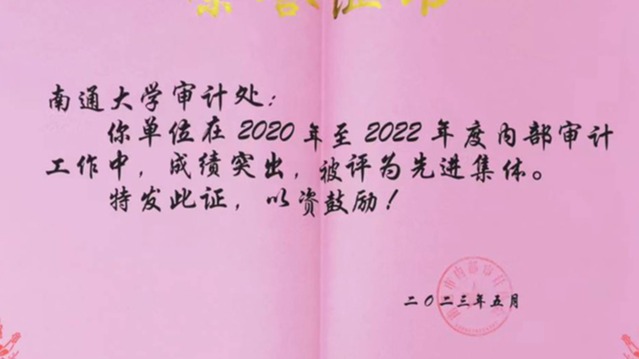 南通大学审计处：
你单位在2020年至2022年度内部审计
工作中，成绩突出，被评为先进集体。
特发此证，以资鼓励！
二〇二三年五月